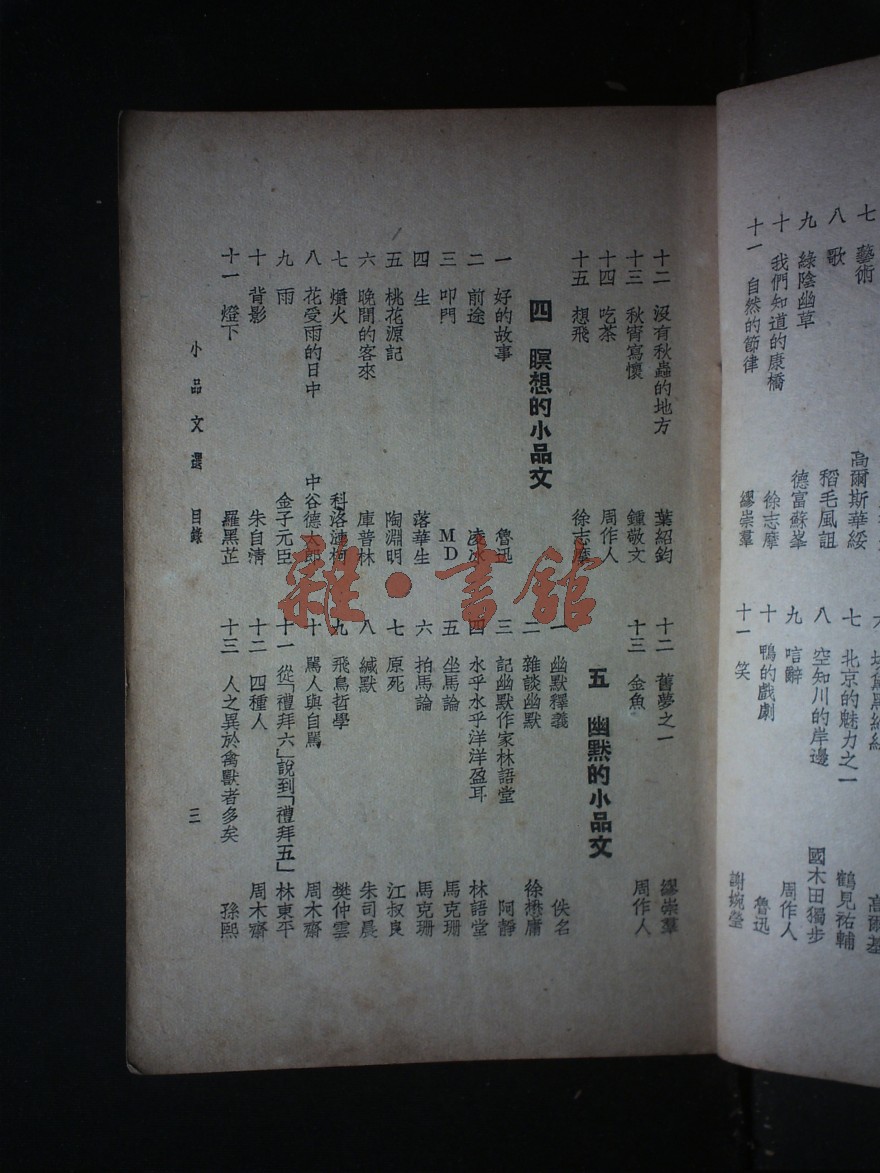 七 藝術 高爾斯華綏
八 歌 稻毛風詛
九 綠陰幽草 德富蘇峯
十 我們知道的康橋 徐志摩
十一 自然的節律 繆崇羣
高爾基
七 北京的魅力之一 鶴見祐輔
八 空知川的岸邊 國木田獨步
九 唁辭 周作人
十 鴨的戲劇 魯迅
十一 笑 謝婉瑩
十二 沒有秋蟲的地方 葉紹鈞
十三 秋宵寫懷 鍾敬文
十四 吃茶 周作人
十五 想飛 徐志摩
四 瞑想的小品文
一 好的故事 魯迅
二 前途 凌冰
三 叩門 MD
四 生 落華生
五 桃花源記 陶淵明
六 晚間的客來 庫普林
七 爝火 科洛漣柯
八 花受雨的日中 中谷德太郎
九 雨 金子元臣
十 背影 朱自清
十一 燈下 羅黑芷
十二 舊夢之一 繆崇羣
十三 金魚 周作人
五 幽默的小品文
一 幽默釋義 佚名
二 雜談幽默 徐懋庸
三 記幽默作家林語堂 阿靜
四 水乎水乎洋洋盈耳 林語堂
五 坐馬論 馬克珊
六 拍馬論 馬克珊
七 原死 江叔良
八 緘默 朱司晨
九 飛鳥哲學 樊仲雲
十 罵人與自罵 周木齋
十一 從「禮拜六」說到「禮拜五」 林東平
十二 四種人 周木齋
十三 人之異於禽獸者多矣 孫熙
小品文選 目錄 三
雜·書館